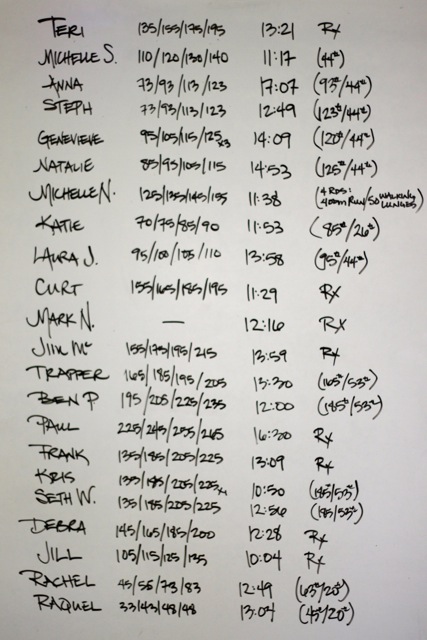 TERI 135/155/175/195 13:21 Rx
MICHELLE S. 110/120/130/140 11:17 (44#)
ANNA 73/93/113/123 17:07 (93#/44#)
STEPH 73/93/113/123 12:49 (123#/44#)
GENEVIEVE 95/105/115/125x3 14:09 (120#/44#)
NATALIE 85/95/105/115 14:53 (125#/44#)
MICHELLE N. 125/135/145/155 11:38 (4 RDS: 400m RUN/50 WALKING LUNGES)
KATIE 70/75/85/90 11:53 (85#/26#)
LAURA J. 95/100/105/110 13:58 (95#/44#)
CURT 155/165/185/195 11:29 Rx
MARK N. — 12:16 Rx
JIM Mc 155/175/195/215 13:59 Rx
TRAPPER 165/185/195/205 13:30 (165#/53#)
BEN P 195/205/225/235 12:00 (185#/53#)
PAUL 225/245/255/265 16:30 Rx
FRANK 135/185/205/225 13:09 Rx
KRIS 135/185/205/225 10:50 (185#/53#)
SETH W. 135/185/205/225 12:56 (185/53#)
DEBRA 145/165/185/200 12:28 Rx
JILL 105/115/125/135 10:04 Rx
RACHEL 45/55/73/83 12:49 (63#/20#)
RAQUEL 33/43/48/48 13:07 (45#/20#)